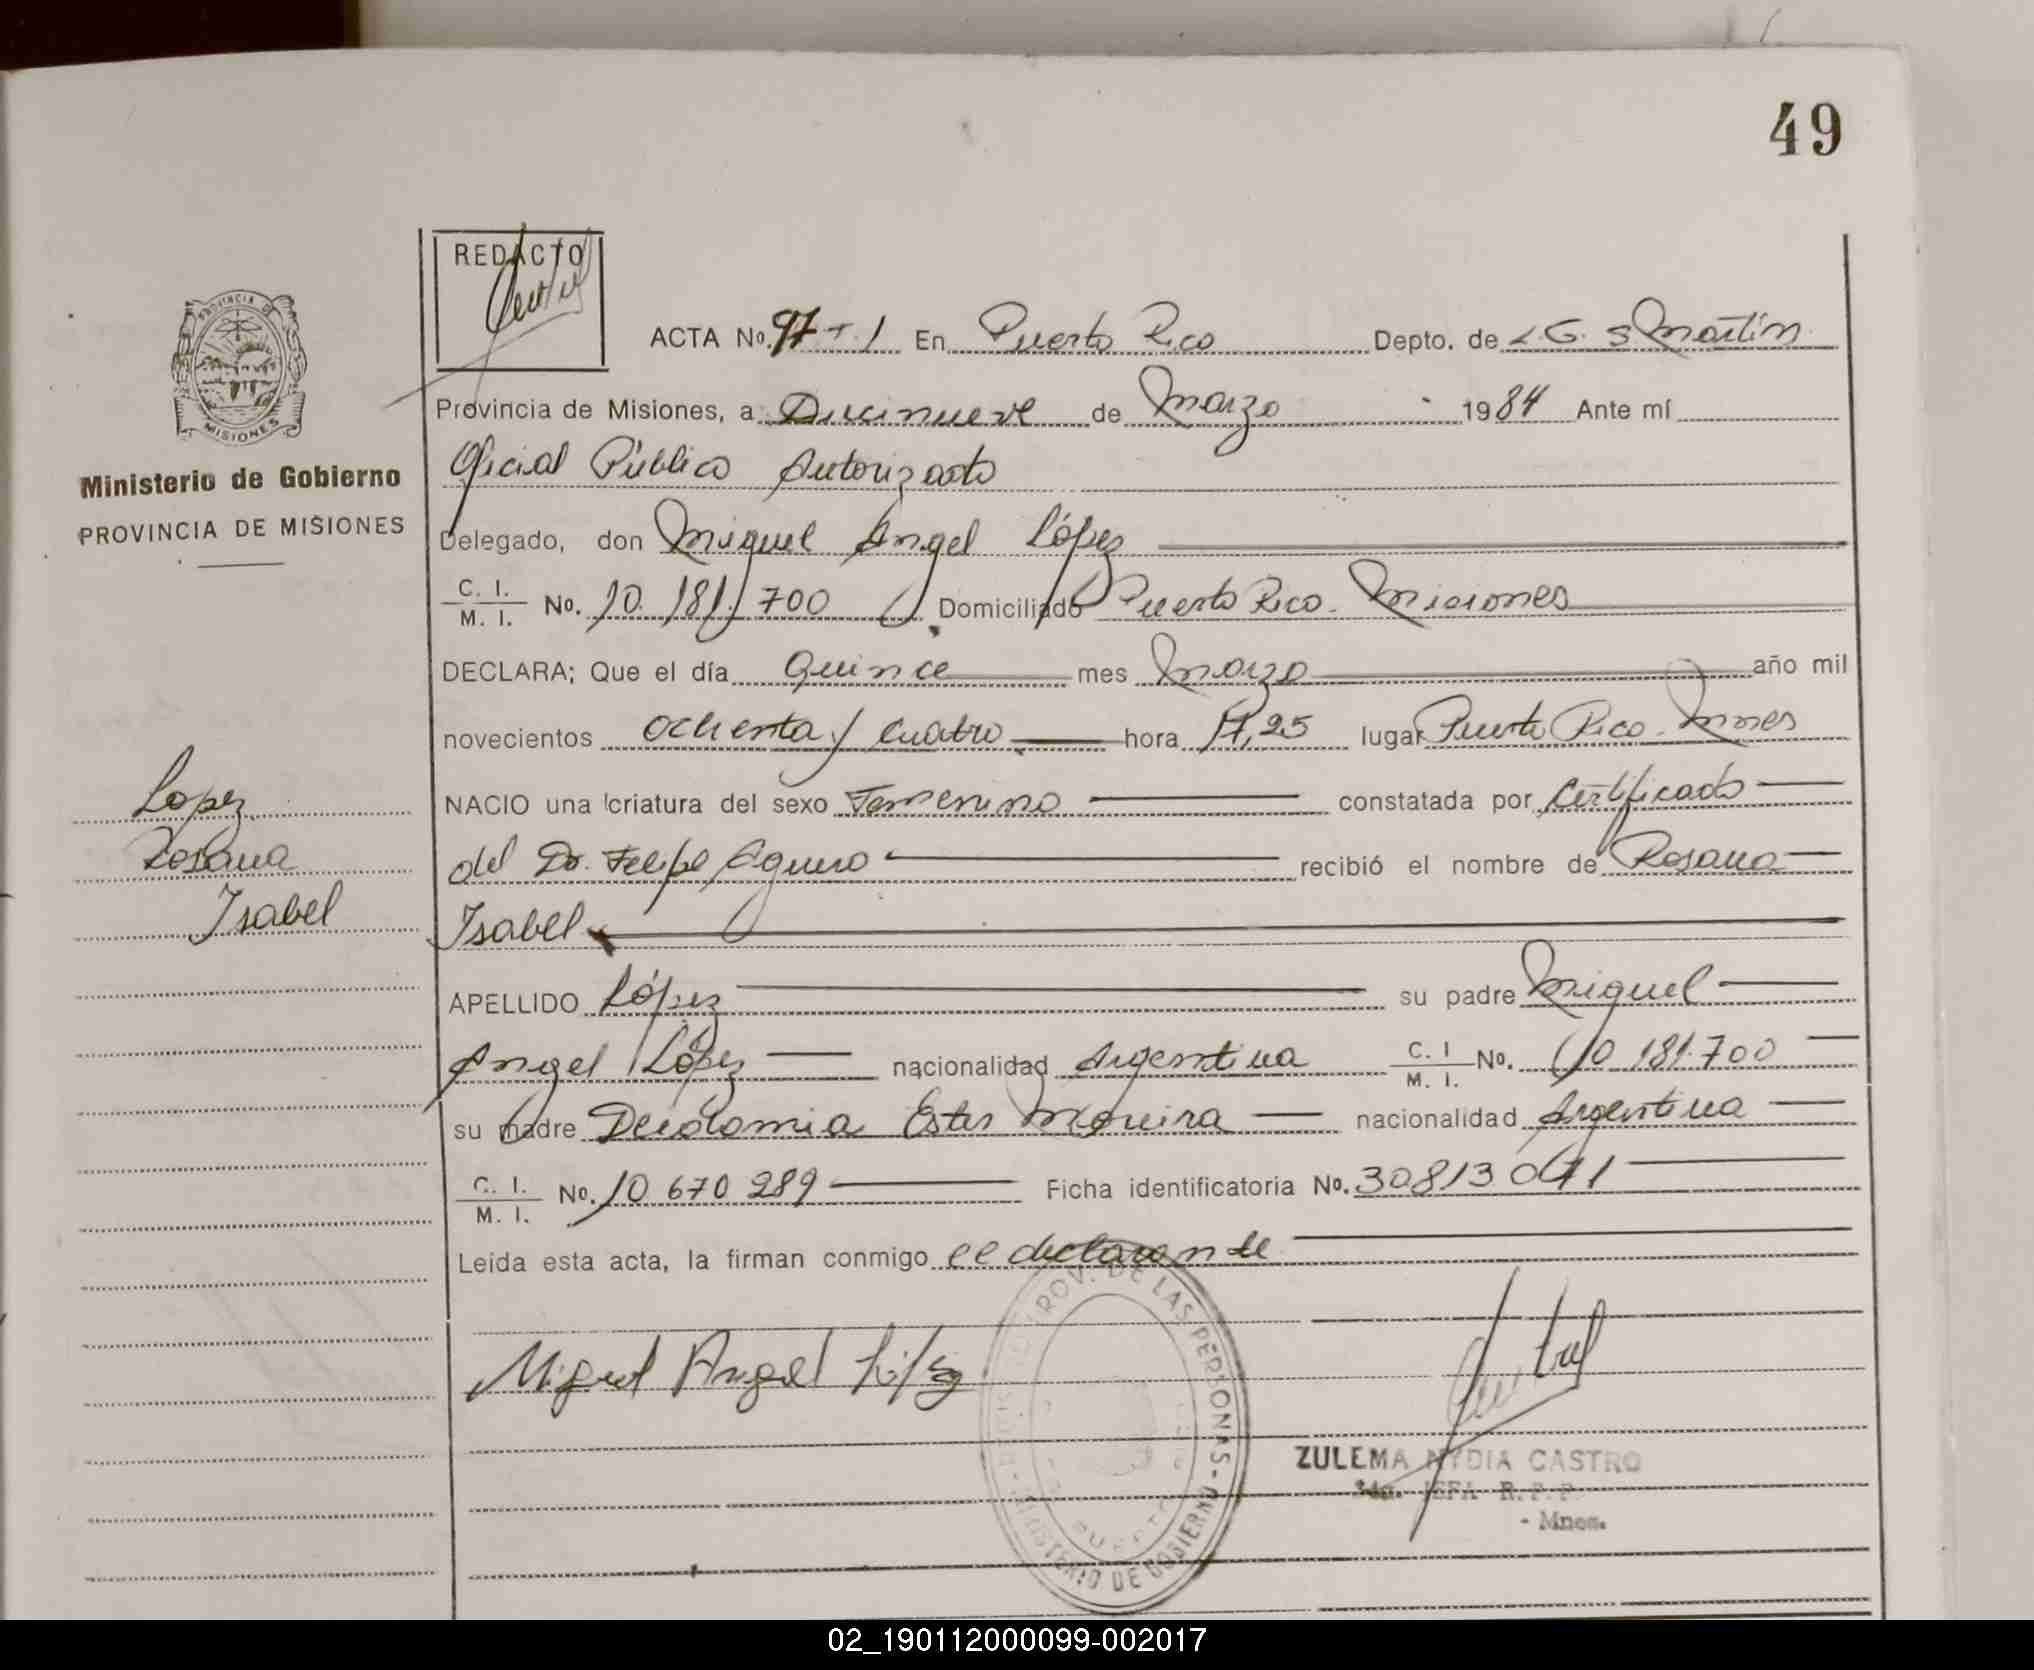 49
REDACTO
ACTA No. 97 T. 1 En Puerto Rico Depto. de L. G. S Martín
Provincia de Misiones, a Diecinueve de Marzo 1984 Ante mí
Oficial Público Autorizado
PROVINCIA DE
MISIONES
Ministerio de Gobierno
PROVINCIA DE MISIONES
Delegado, don Miguel Angel López
C. I.
M. I. No. 10.181.700 Domiciliado Puerto Rico. Misiones
DECLARA; Que el día Quince mes Marzo año mil
novecientos ochenta y cuatro hora 17,25 lugar Puerto Rico. Mnes
NACIO una criatura del sexo Femenino constatada por Certificado
del Dr. Felipe Aguero recibió el nombre de Rosana
Isabel
Lopez
Rosana
Isabel
APELLIDO López su padre Miguel
Angel López nacionalidad Argentina C. I. M. I. No. 10.181.700
su madre Ester Moreira nacionalidad Argentina
C. I.
M. I. No. 10 670 289 Ficha identificatoria No. 30813041
Leída esta acta, la firman conmigo el declarante
Miguel Angel López
PROV. DE LAS PERSONAS - MINISTERIO DE GOBIERNO
PUERTO
ZULEMA NYDIA CASTRO
JEFA R. P. P.
- Mnes.
02_190112000099-002017